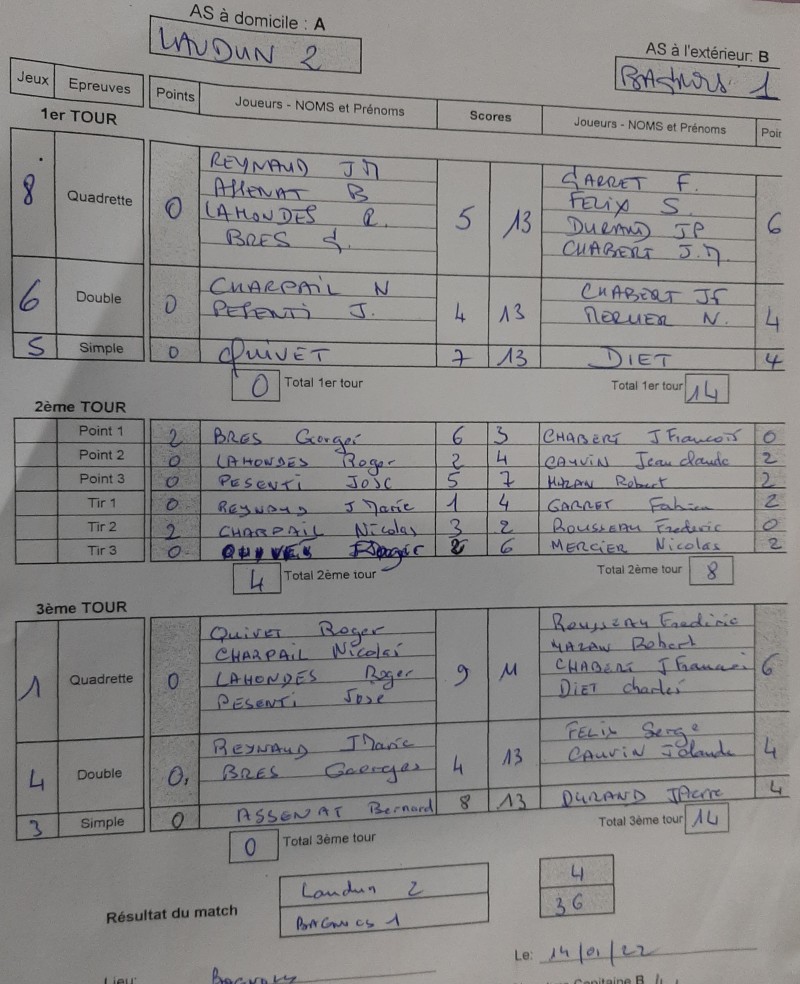 AS à domicile : A
LAUDUN 2
AS à l'extérieur: B
BAGNOLS 1
Jeux Epreuves Points Joueurs - NOMS et Prénoms Scores Joueurs - NOMS et Prénoms Poin
1er TOUR
8 Quadrette 0 5 13 6
REYNAUD J M GARRET F.
ASSENAT B FELIX S.
LAHONDES R. DURAND JP
BRES G. CHABERT J.M.
6 Double 0 4 13 4
CHARPAIL N CHABERT JF
PESENTI J. MERCIER N.
5 Simple 0 QUIVET 7 13 DIET 4
0 Total 1er tour Total 1er tour 14
2ème TOUR
Point 1 2 BRES Georges 6 3 CHABERT J Francois 0
Point 2 0 LAHONDES Roger 2 4 CAUVIN Jean claude 2
Point 3 0 PESENTI JOSE 5 7 MAZAN Robert 2
Tir 1 0 REYNAUD J Marie 1 4 GARRET Fabien 2
Tir 2 2 CHARPAIL Nicolas 3 2 ROUSSEAU Frederic 0
Tir 3 0 2 6 MERCIER Nicolas 2
4 Total 2ème tour Total 2ème tour 8
3ème TOUR
1 Quadrette 0 9 11 6
QUIVET Roger ROUSSEAU Frederic
CHARPAIL Nicolas MAZAN Robert
LAHONDES Roger CHABERT J Francois
PESENTI José DIET Charles
4 Double 0 4 13 4
REYNAUD J Marie FELIX Serge
BRES Goerges CAUVIN
3 Simple 0 ASSENAT Bernard 8 13 DURAND JPierre 4
0 Total 3ème tour Total 3ème tour 14
Résultat du match
Laudun 2 4
BAGNOLS 1 36
Le: 14/01/22
Lieu: Bagnols
Capitaine B